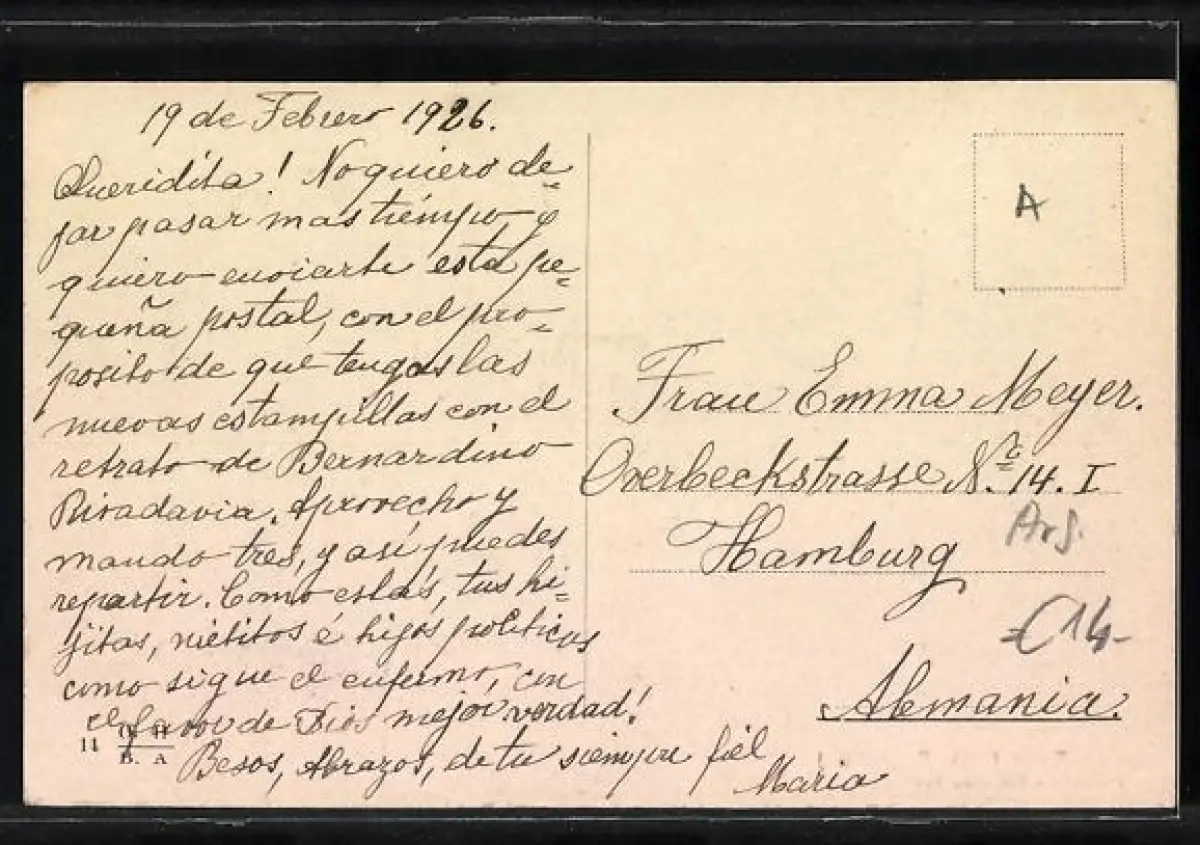 19 de Febrero 1926.
Queridita! No quiero de=
jar pasar mas tiempo y
quiero enviarte esta pe=
queña postal, con el pro=
posito de que tengas las
nuevas estampillas con el
retrato de Bernardino
Rivadavia. Aprovecho y
mando tres, y así puedes
repartir. Como estás, tus hi=
jitas, nietitos é hijos politicos
como sigue el enfermo, con
el favor de Dios mejor verdad!
Besos, Abrazos, de tu siempre fiel
Maria
11
B. A
A
Frau Emma Meyer.
Overbeckstrasse No. 14. I
Hamburg
Arg.
€14-
Alemania.